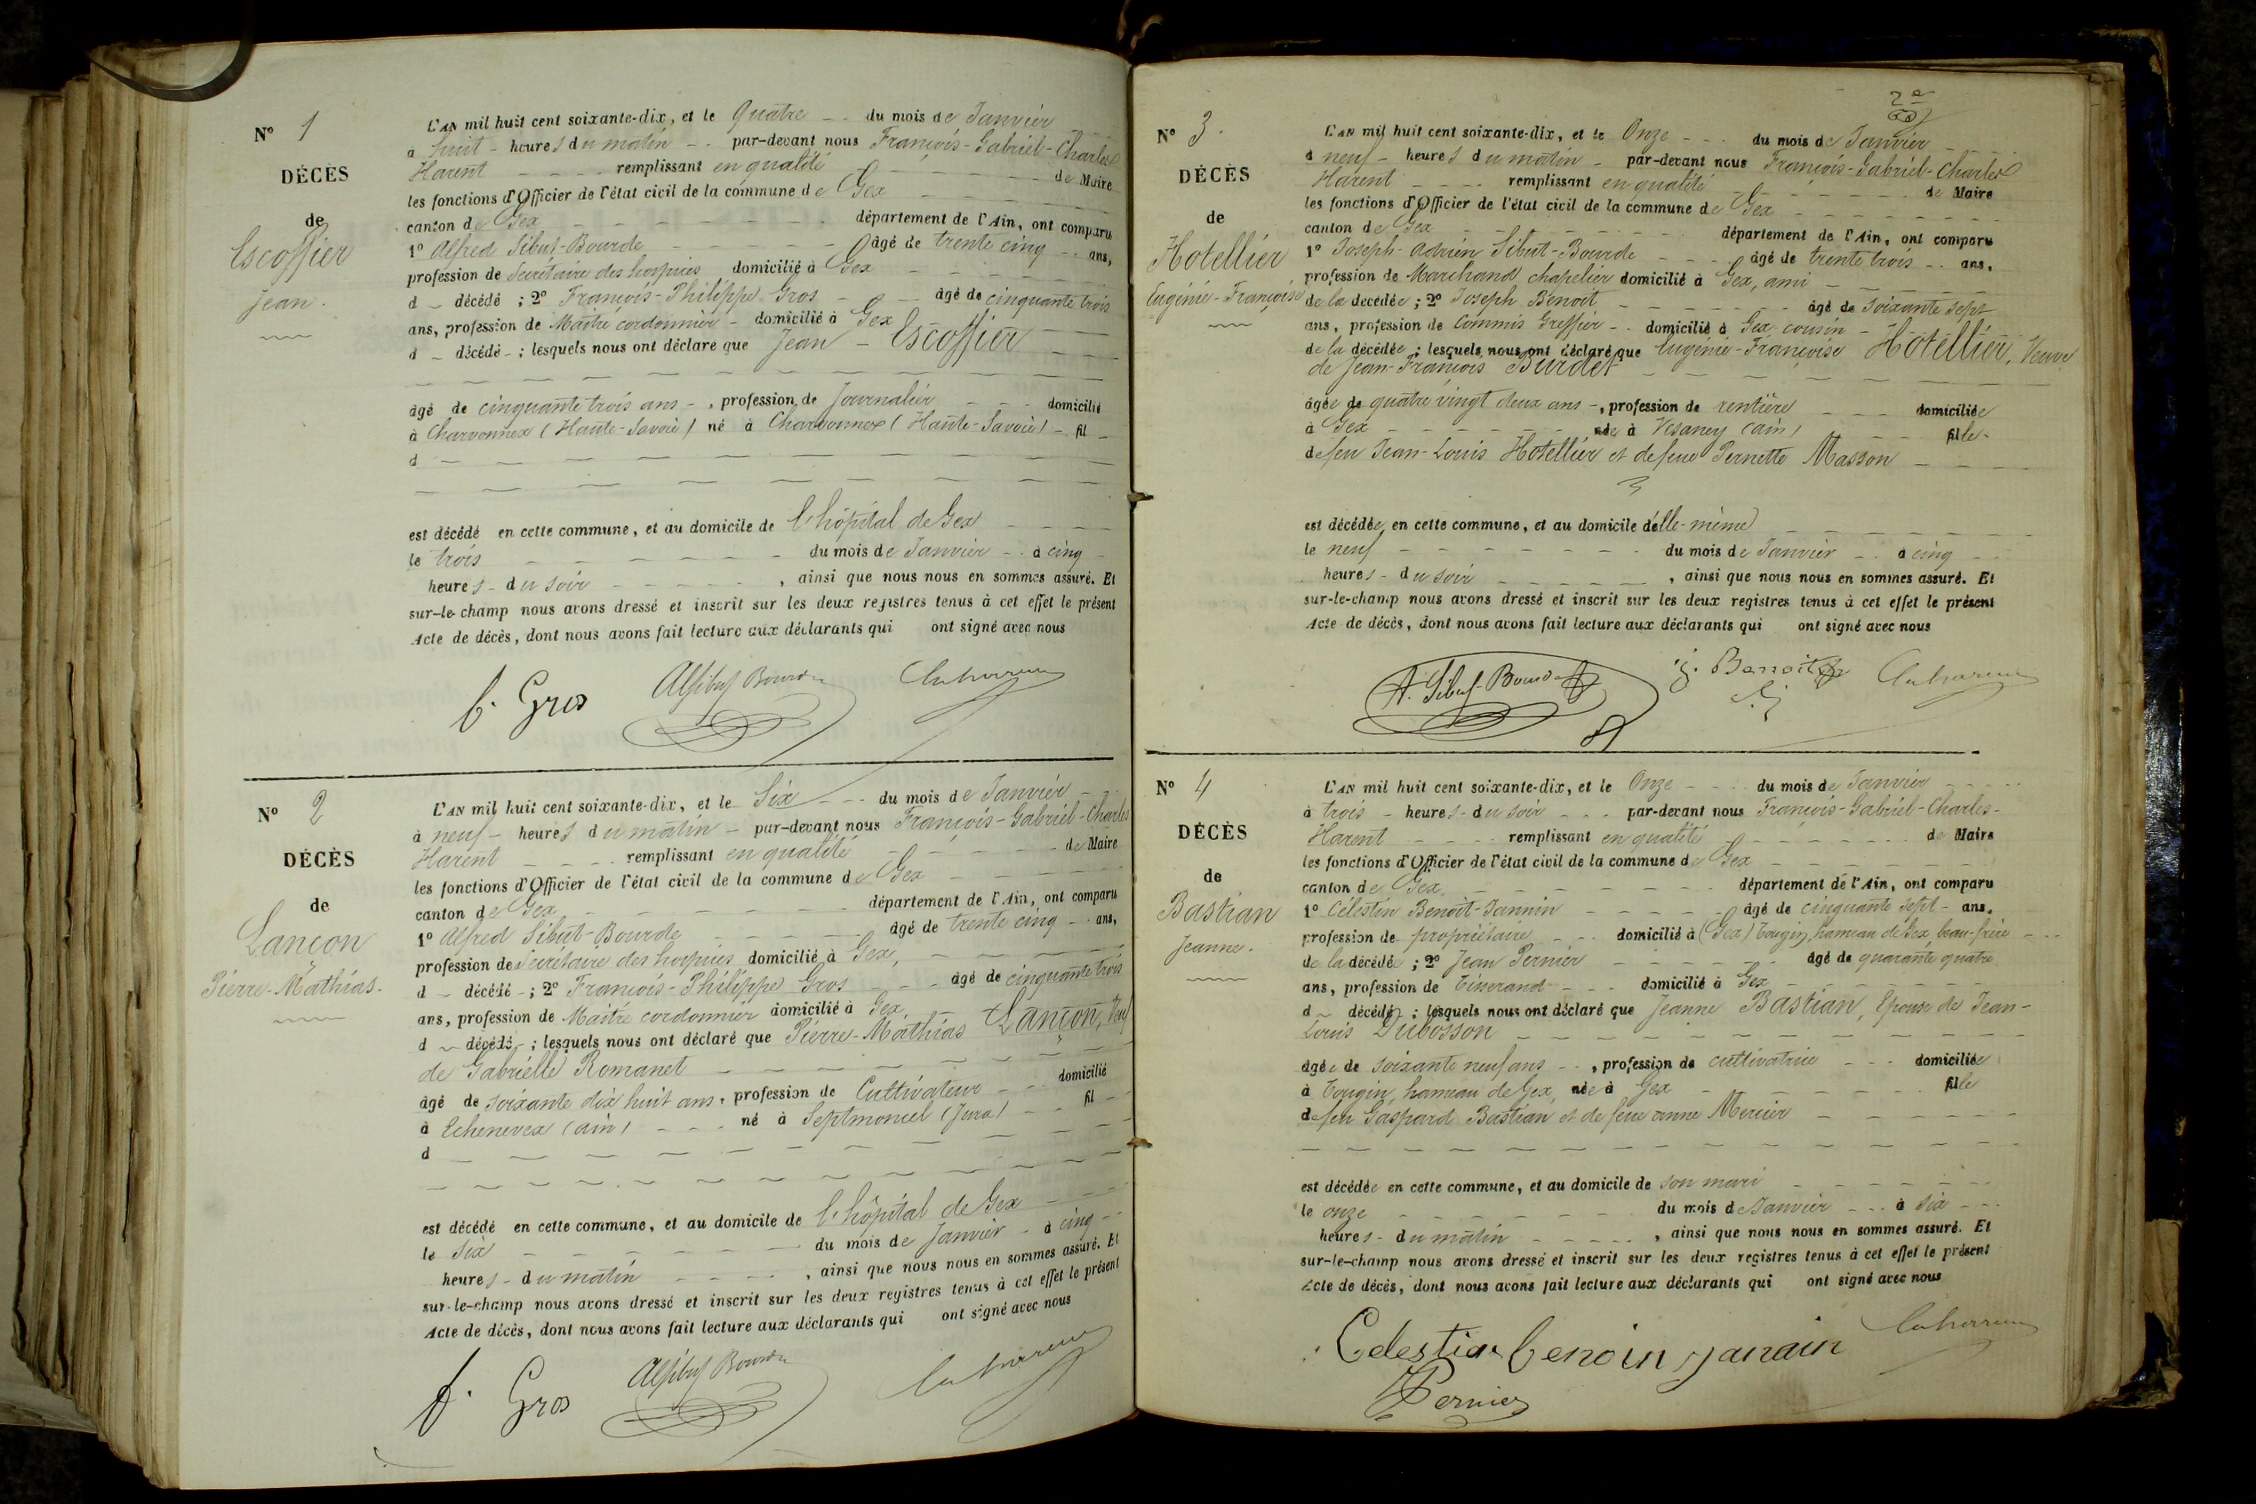 N° 1
DÉCÈS
de
Escoffier
Jean.
L'AN mil huit cent soixante-dix, et le Quatre du mois de Janvier
à huit heures du matin par-devant nous François-Gabriel-Charles
Harent remplissant en qualité de Maire
les fonctions d'Officier de l'état civil de la commune de Gex
canton de Gex département de l'Ain, ont comparu
1° Alfred Sibut-Bourde âgé de trente cinq ans,
profession de Secrétaire des hospices domicilié à Gex
d décédé ; 2° François-Philippe Gros âgé de cinquante trois
ans, profession de Maître cordonnier domicilié à Gex
d décédé ; lesquels nous ont déclaré que Jean Escoffier
âgé de cinquante trois ans, profession de Journalier domicilié
à Charvonnex (Haute-Savoie) né à Charvonnex (Haute-Savoie) fil
d
est décédé en cette commune, et au domicile de l'hôpital de Gex
le trois du mois de Janvier à cinq
heures du soir, ainsi que nous nous en sommes assuré. Et
sur-le-champ nous avons dressé et inscrit sur les deux registres tenus à cet effet le présent
Acte de décès, dont nous avons fait lecture aux déclarants qui ont signé avec nous
f. Gros Alf Sibut Bourde
N° 2
DÉCÈS
de
Lançon
Pierre-Mathias.
L'AN mil huit cent soixante-dix, et le Six du mois de Janvier
à neuf heures du matin par-devant nous François-Gabriel-Charles
Harent remplissant en qualité de Maire
les fonctions d'Officier de l'état civil de la commune de Gex
canton de Gex département de l'Ain, ont comparu
1° Alfred Sibut-Bourde âgé de trente cinq ans,
profession de Secrétaire des hospices domicilié à Gex,
d décédé ; 2° François-Philippe Gros âgé de cinquante trois
ans, profession de Maître cordonnier domicilié à Gex
d décédé ; lesquels nous ont déclaré que Pierre-Mathias Lançon, Veuf
de Gabrielle Romanet
âgé de soixante dix huit ans, profession de Cultivateur domicilié
à Echenevex (ain) né à Septmoncel (Jura) fil
d
est décédé en cette commune, et au domicile de l'hôpital de Gex
le Six du mois de Janvier à cinq
heures du matin, ainsi que nous nous en sommes assuré. Et
sur-le-champ nous avons dressé et inscrit sur les deux registres tenus à cet effet le présent
Acte de décès, dont nous avons fait lecture aux déclarants qui ont signé avec nous
f. Gros Alf Sibut Bourde
2e
N° 3.
DÉCÈS
de
Hotellier
Eugénie-Françoise
L'AN mil huit cent soixante-dix, et le Onze du mois de Janvier
à neuf heures du matin par-devant nous François-Gabriel-Charles
Harent remplissant en qualité de Maire
les fonctions d'Officier de l'état civil de la commune de Gex
canton de Gex département de l'Ain, ont comparu
1° Joseph-Adrien Sibut-Bourde âgé de trente trois ans,
profession de Marchand chapelier domicilié à Gex, ami
de la décédée ; 2° Joseph Benoit âgé de soixante sept
ans, profession de Commis Greffier domicilié à Gex, cousin
de la décédée ; lesquels nous ont déclaré que Eugénie-Françoise Hotellier, Veuve
de Jean-François Burdet
âgée de quatre vingt deux ans, profession de rentière domiciliée
à Gex née à Vesancy (ain) fille
de feu Jean-Louis Hotellier et de feue Pernette Masson
est décédée en cette commune, et au domicile d'elle-même
le neuf du mois de Janvier à cinq
heures du soir, ainsi que nous nous en sommes assuré. Et
sur-le-champ nous avons dressé et inscrit sur les deux registres tenus à cet effet le présent
Acte de décès, dont nous avons fait lecture aux déclarants qui ont signé avec nous
A. Sibut-Bourde j. Benoit
N° 4
DÉCÈS
de
Bastian
Jeanne.
L'AN mil huit cent soixante-dix, et le Onze du mois de Janvier
à trois heures du soir par-devant nous François-Gabriel-Charles
Harent remplissant en qualité de Maire
les fonctions d'Officier de l'état civil de la commune de Gex
canton de Gex département de l'Ain, ont comparu
1° Célestin Benoit-Jannin âgé de cinquante sept ans,
profession de propriétaire domicilié à (Gex) Tougin, hameau de Gex, beau-frère
de la décédée ; 2° Jean Pernier âgé de quarante quatre
ans, profession de Tisserand domicilié à Gex
d décédé ; lesquels nous ont déclaré que Jeanne Bastian, Epouse de Jean-
Louis Dubosson
âgée de soixante neuf ans, profession de cultivatrice domiciliée
à Tougin, hameau de Gex, née à Gex fille
de feu Gaspard Bastian et de feue anne Mercier
est décédée en cette commune, et au domicile de son mari
le onze du mois de Janvier à six
heures du matin, ainsi que nous nous en sommes assuré. Et
sur-le-champ nous avons dressé et inscrit sur les deux registres tenus à cet effet le présent
Acte de décès, dont nous avons fait lecture aux déclarants qui ont signé avec nous
Celestin benoin janain
Pernier